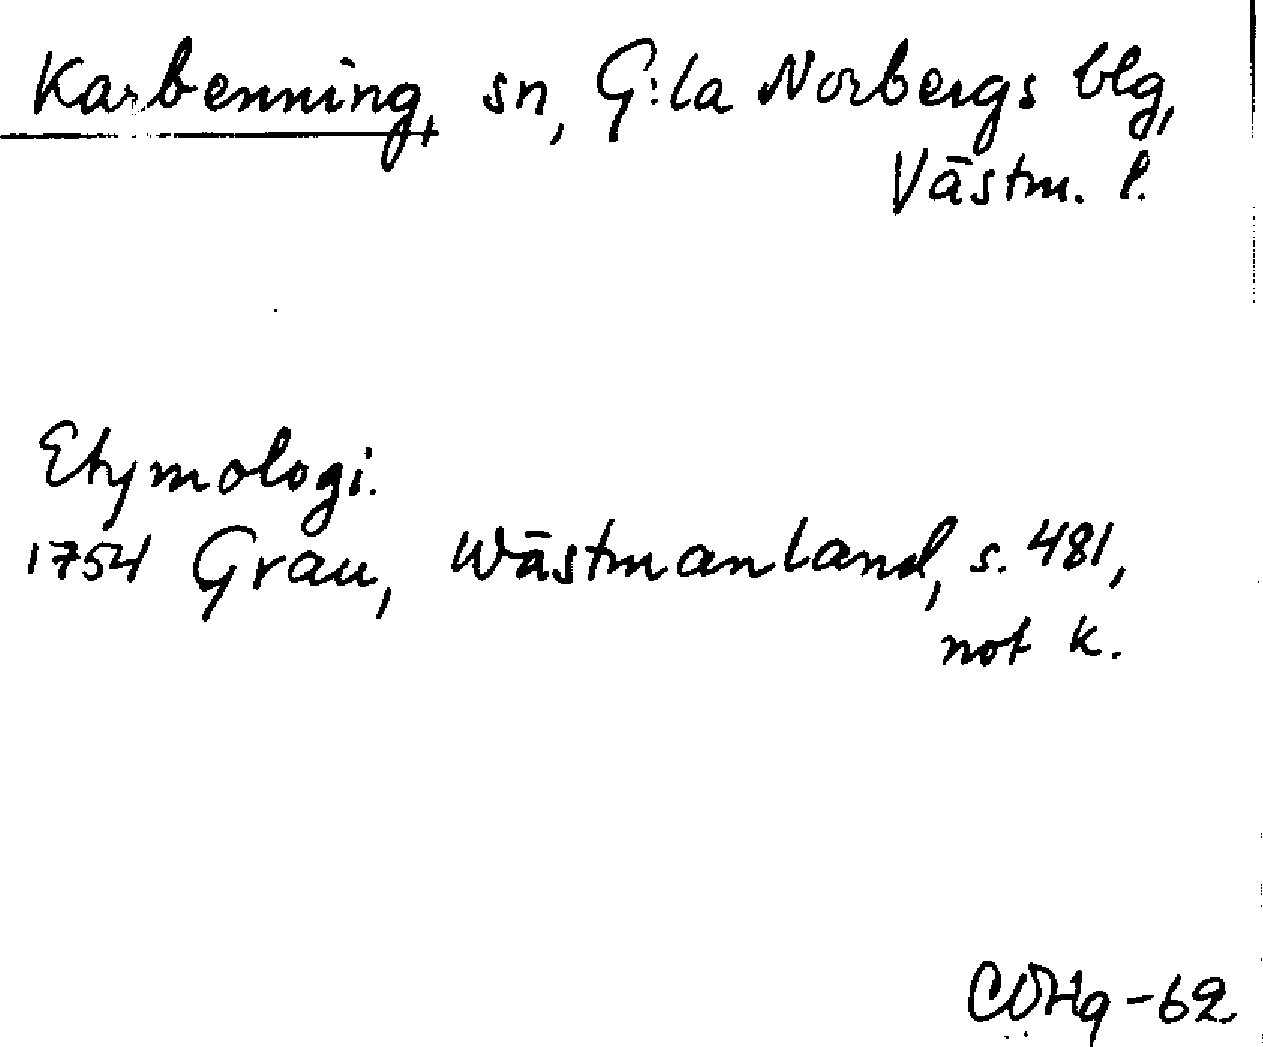 Karbenning, sn, G:la Norbergs blg,
Västm. l.
Etymologi.
1754 Grau, Wästmanland, s. 481,
not k.
-62